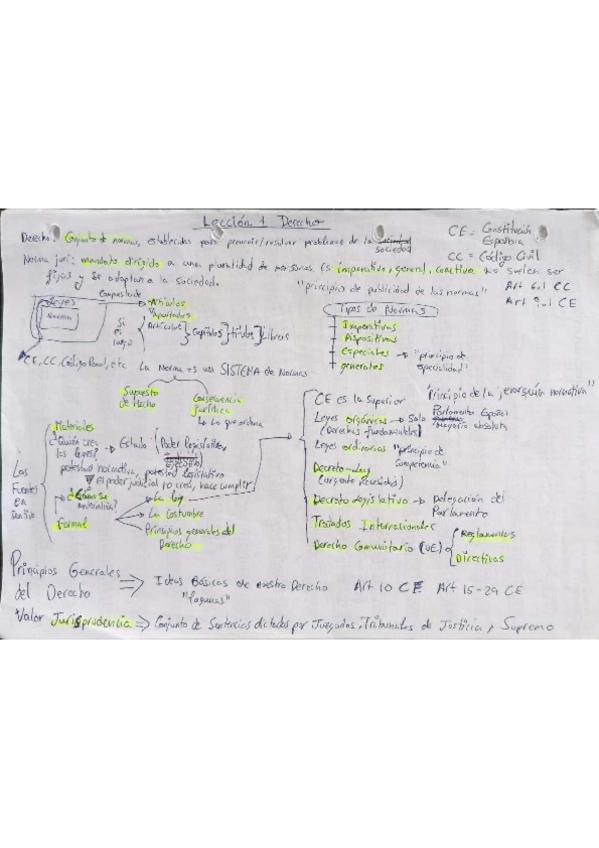 Lección 1 Derecho
CE = Constitución Española
CC = Código Civil
Derecho: Conjunto de normas, establecidas para prevenir/resolver problemas de la sociedad
Norma juri: mandato dirigido a una pluralidad de personas (s imperativo, general, coactiva no suelen ser
fijas y se adaptan a la sociedad.
"principio de publicidad de las normas"
Art 6.1 CC
Art 9.1 CE
Leyes
Norma
Compuesta de
Artículos
Apartados
Si es largo
Artículos } Capítulos } títulos } Libros
CE, CC, Código Penal, etc.
La Norma es un SISTEMA de Normas
Tipos de Normas
Imperativas
Dispositivas
Especiales → "principio de especialidad"
generales
Supuesto de Hecho
Consecuencia jurídica
Lo que ordena
Las Fuentes
Materiales
¿Quién crea las leyes? → Estado (Poder legislativo,
potestad normativa, potestad legislativa
El poder judicial no crea, hace cumplir
Formal
La ley
La Costumbre
Principios generales del Derecho
"Principio de la jerarquía normativa"
CE es la Superior
Leyes orgánicas → Solo Parlamento Español
(Derechos fundamentales) Mayoría absoluta
Leyes ordinarias "principio de competencia"
Decreto-Ley
(urgente necesidad)
Decreto legislativo → Delegación del Parlamento
Tratados Internacionales
Derecho Comunitario (UE)
Reglamentos
Directivas
Principios Generales del Derecho ⇒ Ideas Básicas de nuestro Derecho Art 10 CE Art 15-29 CE
"lagunas"
Valor Jurisprudencia ⇒ Conjunto de Sentencias dictadas por Juzgados, Tribunales de Justicia y Supremo